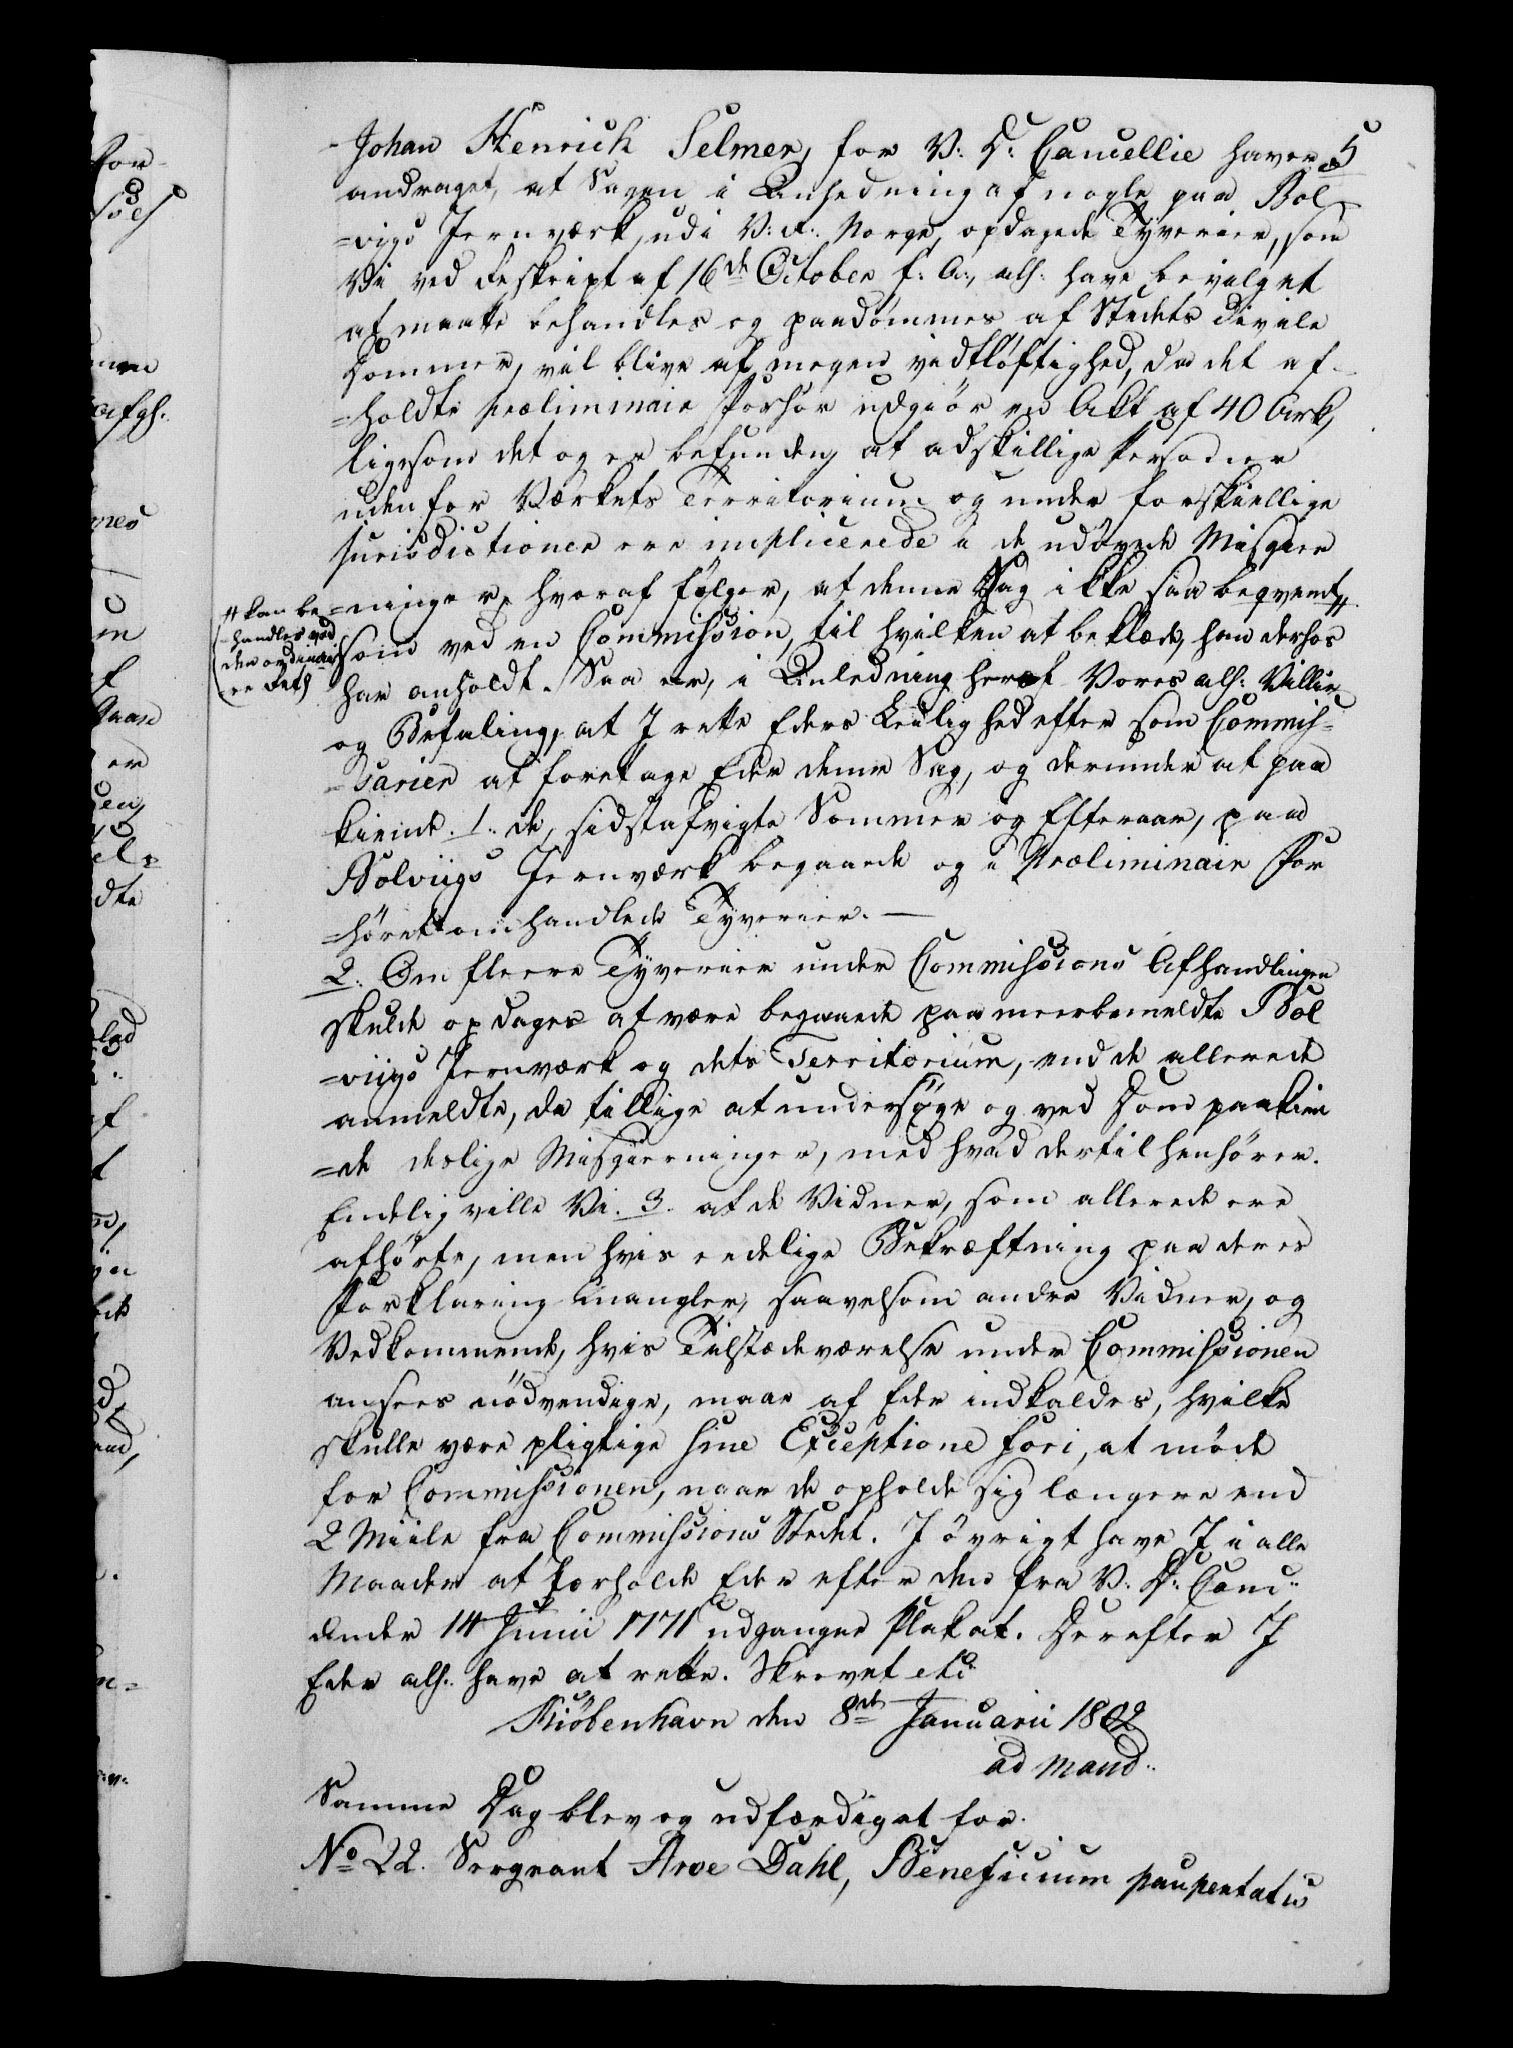 Johan Henrich Selmer, for V: D: Cancellie haver 5
andraget, at Sagen i Anledning af nogle paa Bol-
=vigs Jernværk, udi V: R: Norge, opdagede Tyverier, som
Vi ved Reskript af 16de October f: A:, alh: have bevilget
at maatte behandles og paadømmes af Stedets Civile
Dommer, vil blive af megen vidtløftighed, da det af-
=holdte præliminair Forhør udgiør en Akt af 40 Ark,
ligesom det og er befunden, at adskillige Personer
uden for Værkets Territorium og under forskiellige
Jurisdictioner ere implicerede i de udøvede Misgier
=ninger, hvoraf følger, at denne Sag ikke saa beqvemt #
# kan be-
=handles ved
den ordinai-
re Ret)
som ved en Commission, til hvilken at beklæde, han derhos
har anholdt. Saa er, i Anledning heraf Vores alh: Villie
og Befaling, at I rette Eders Leilighed efter som Commis-
=sarier at foretage Eder denne Sag, og derunder at paa
kiende. 1. de, sidstafvigte Sommer og Efteraar, paa
Bolviigs Jernværk begaaede og i Præliminair For
=høret omhandlede Tyverier. —
2. Om fleere Tyverier under Commissions Afhandlingen
skulde opdages at være begaaede paa meerbemeldte Bol
=viigs Jernværk og dets Territorium, end de allerede
anmeldte, da tillige at undersøge og ved Dom paakien
=de deslige Misgierninger, med hvad dertil henhører.
Endelig ville Vi. 3. at de Vidner, som allerede ere
afhørte, men hvis eedelige Bekræftning paa deres
Forklaring mangler, saavelsom andre Vidner, og
Vedkommende, hvis Tilstædeværelse under Commissionen
ansees nødvendige, maae af Eder indkaldes, hvilke
skulle være pligtige sine Exceptione fori, at møde
for Commissionen, naar de opholde sig længere end
2 Miile fra Commissions Stedet. I øvrigt have I i alle
Maader at forholde Eder efter den fra V. D: Canc:
under 14 Junii 1771 udgangne Plakat. Derefter I
Eder alh: have at rette. Skrevet etc
Kiøbenhavn den 8de Januarii 1802
ad mand:
Samme Dag blev og udfærdiget for.
No 22. Sergeant Arve Dahl, Beneficium paupertatis